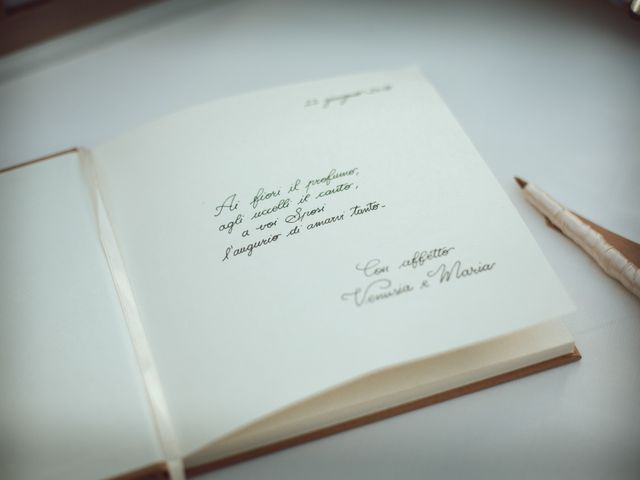 giugno
Ai fiori il profumo,
agli uccelli il canto,
a voi Sposi
l'augurio di amarvi tanto.
Con affetto
Venusia e Maria